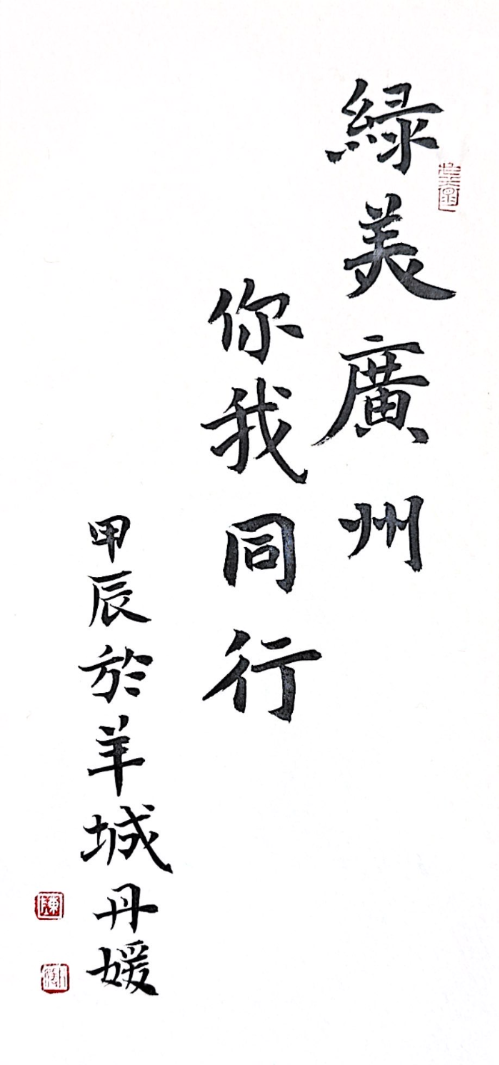 綠美廣州
你我同行
甲辰於羊城丹媛